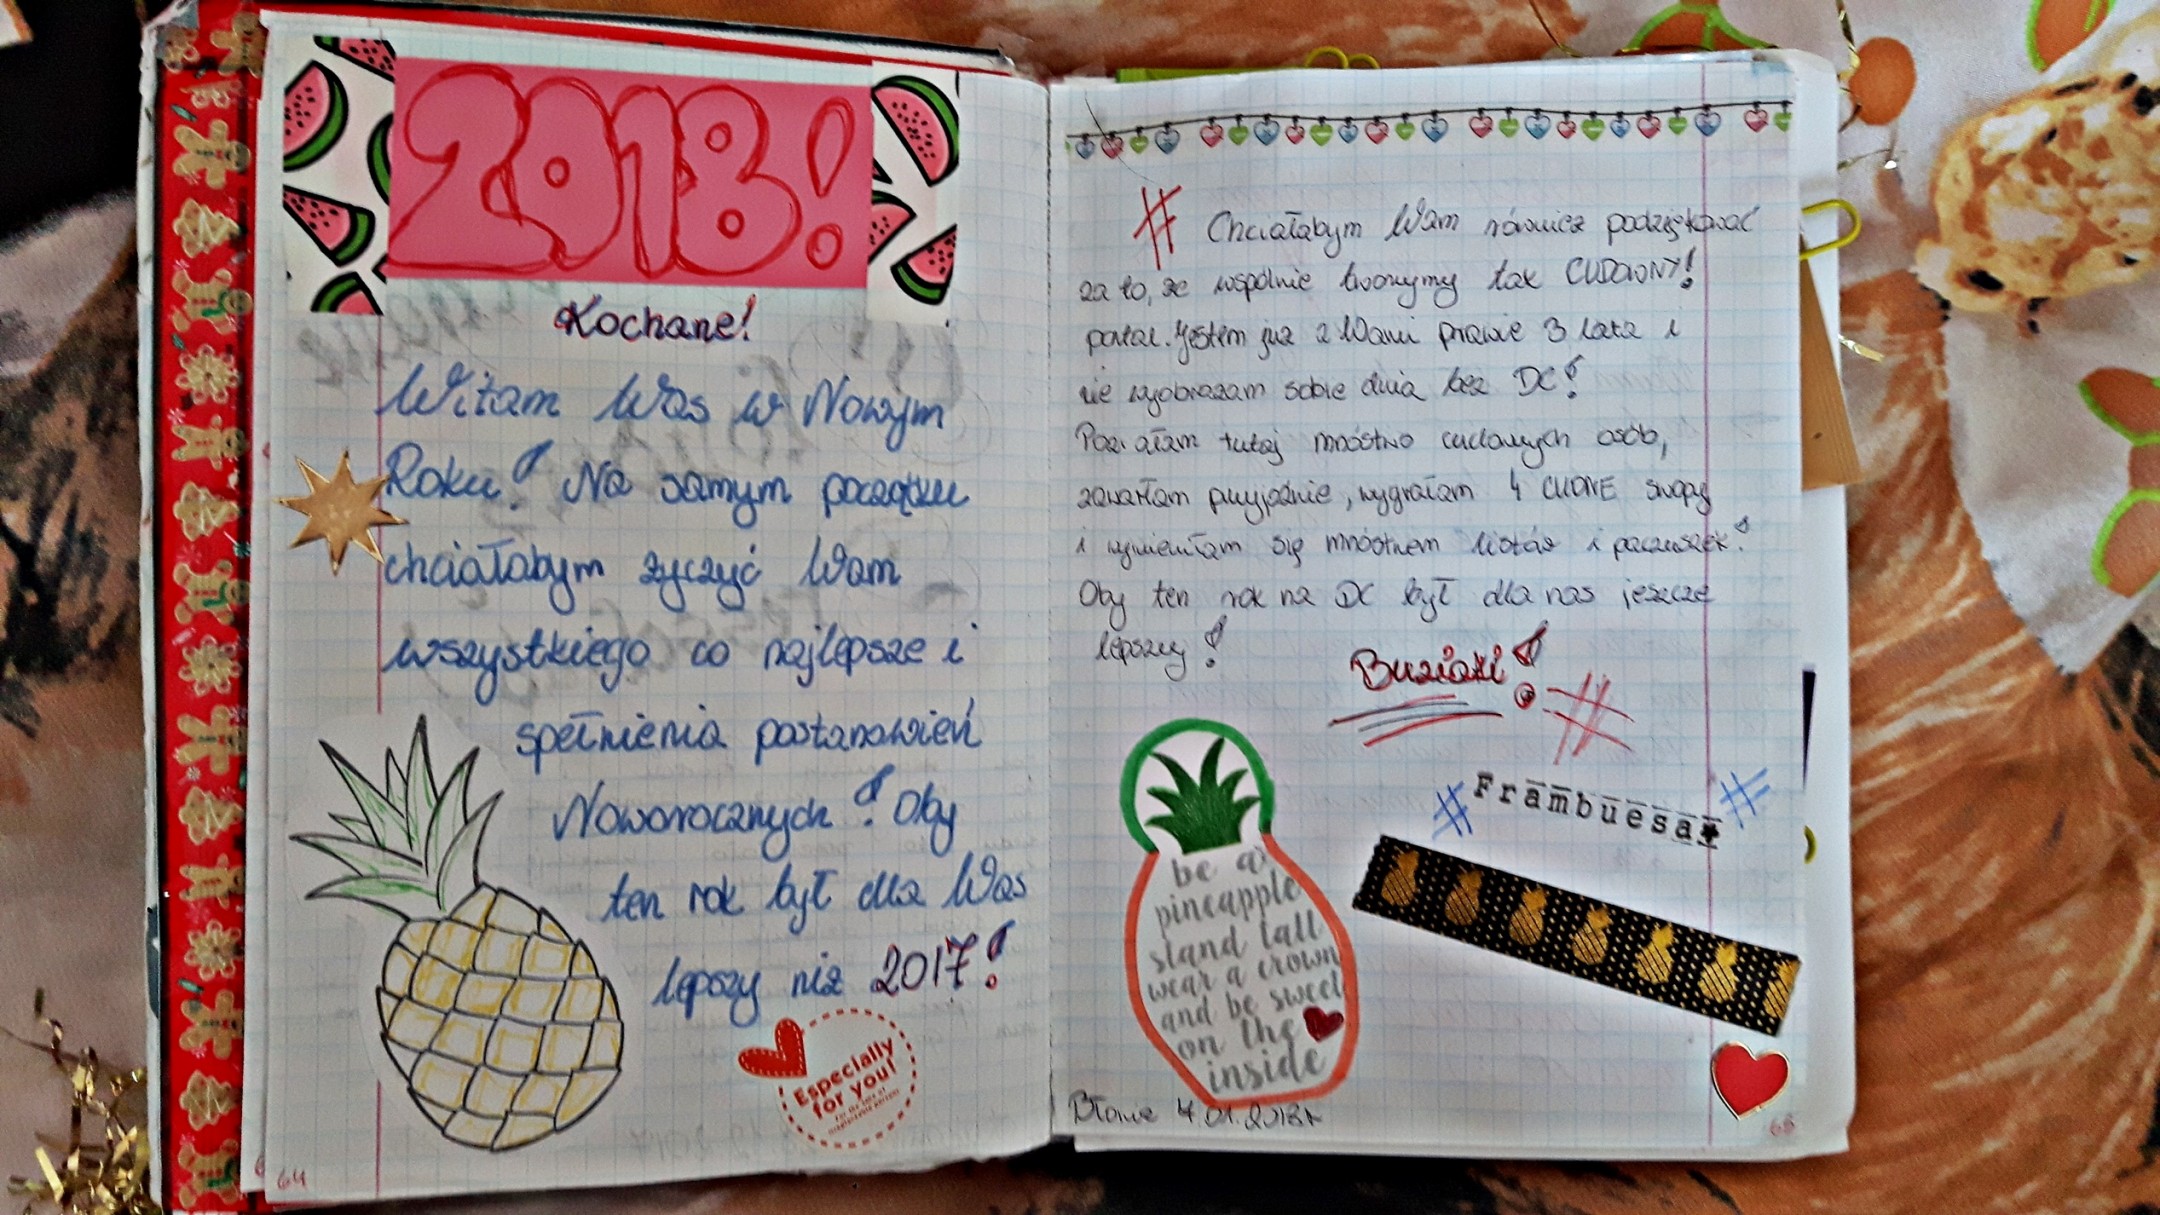 2018!
Kochane!
Witam Was w Nowym
Roku! Na samym początku
chciałabym życzyć Wam
wszystkiego co najlepsze i
spełnienia postanowień
Noworocznych! Oby
ten rok był dla Was
lepszy niż 2017!
Especially
for you!
64
# Chciałabym Wam również podziękować
za to, że wspólnie tworzymy tak CUDOWNY!
portal. Jestem już z Wami prawie 3 lata i
nie wyobrażam sobie dnia bez DC!
Poznałam tutaj mnóstwo cudownych osób,
zawarłam przyjaźnie, wygrałam 4 CUDNE swapy
i wymieniłam się mnóstwem listów i paczuszek!
Oby ten rok na DC był dla nas jeszcze
lepszy!
Buziaki! #
# Frambuesa #
be a
pineapple
stand tall
wear a crown
and be sweet
on the
inside
Błonie 4.01.2018r
65